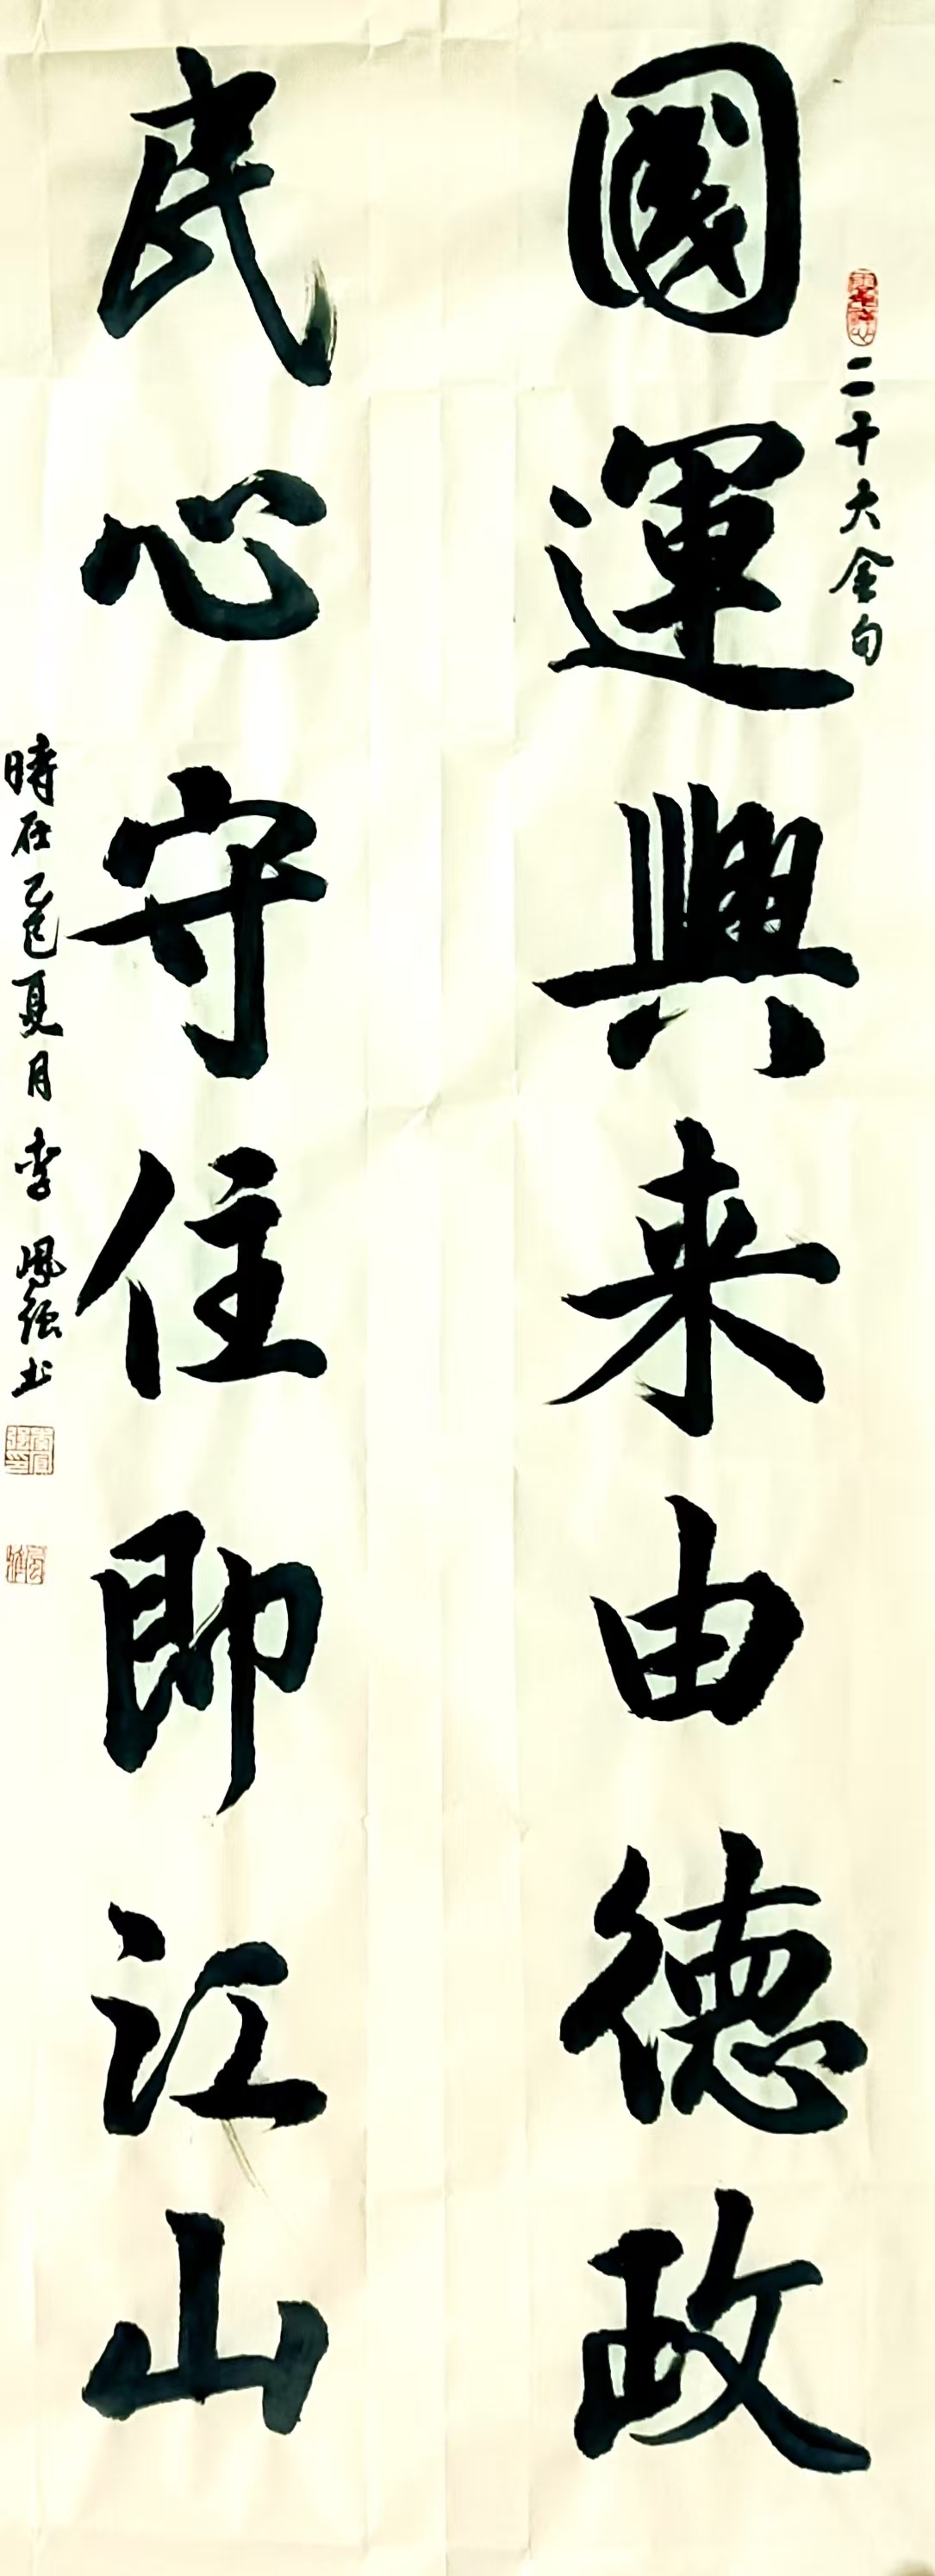 二十大金句
國運興来由德政
民心守住即江山
時在乙巳夏月李鳳强书